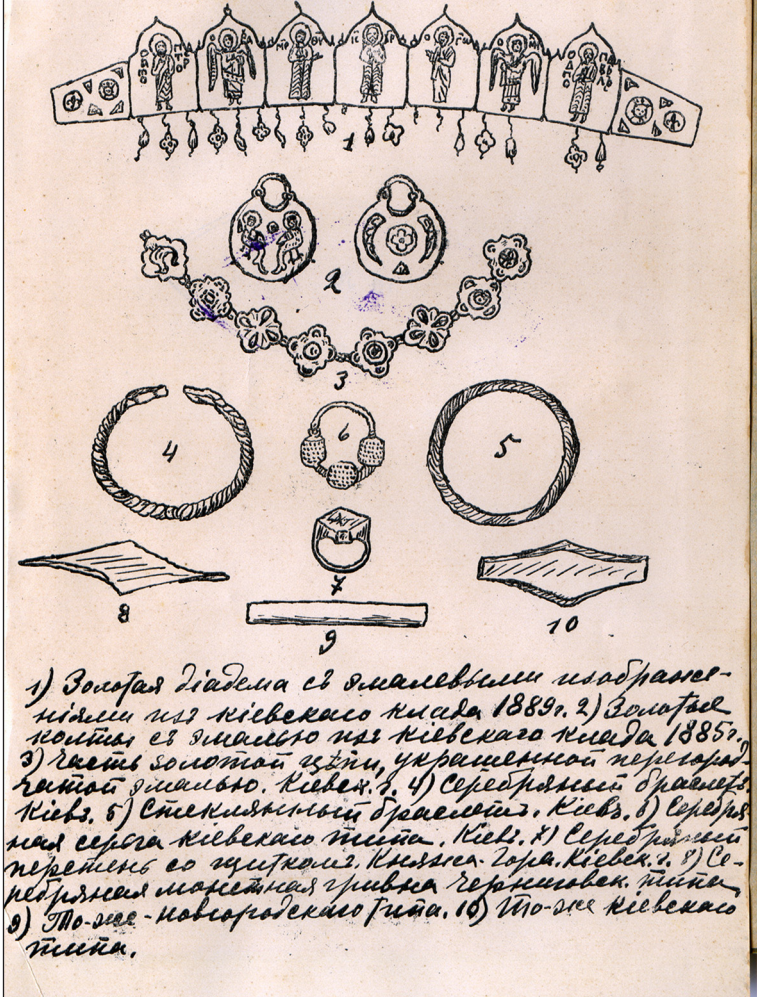 1
2
3
4
6
5
7
8
9
10
1) Золотая діадема съ эмалевыми изображе-
ніями изъ кіевскаго клада 1889г. 2) Золотые
колты съ эмалью изъ кіевскаго клада 1885г.
3) Часть золотой цѣпи, украшенной перегород-
чатой эмалью. Кіевск. г. 4) Серебряный браслетъ.
Кіевъ. 5) Стеклянный браслетъ. Кіевъ. 6) Серебря
ная серьга кіевскаго типа. Кіевъ. 7) Серебряный
перстень со щиткомъ. Княжа Гора. Кіевск. г. 8) Се-
ребряная монетная гривна черниговск. типа
9) То-же-новгородскаго типа. 10) То-же кіевскаго
типа.